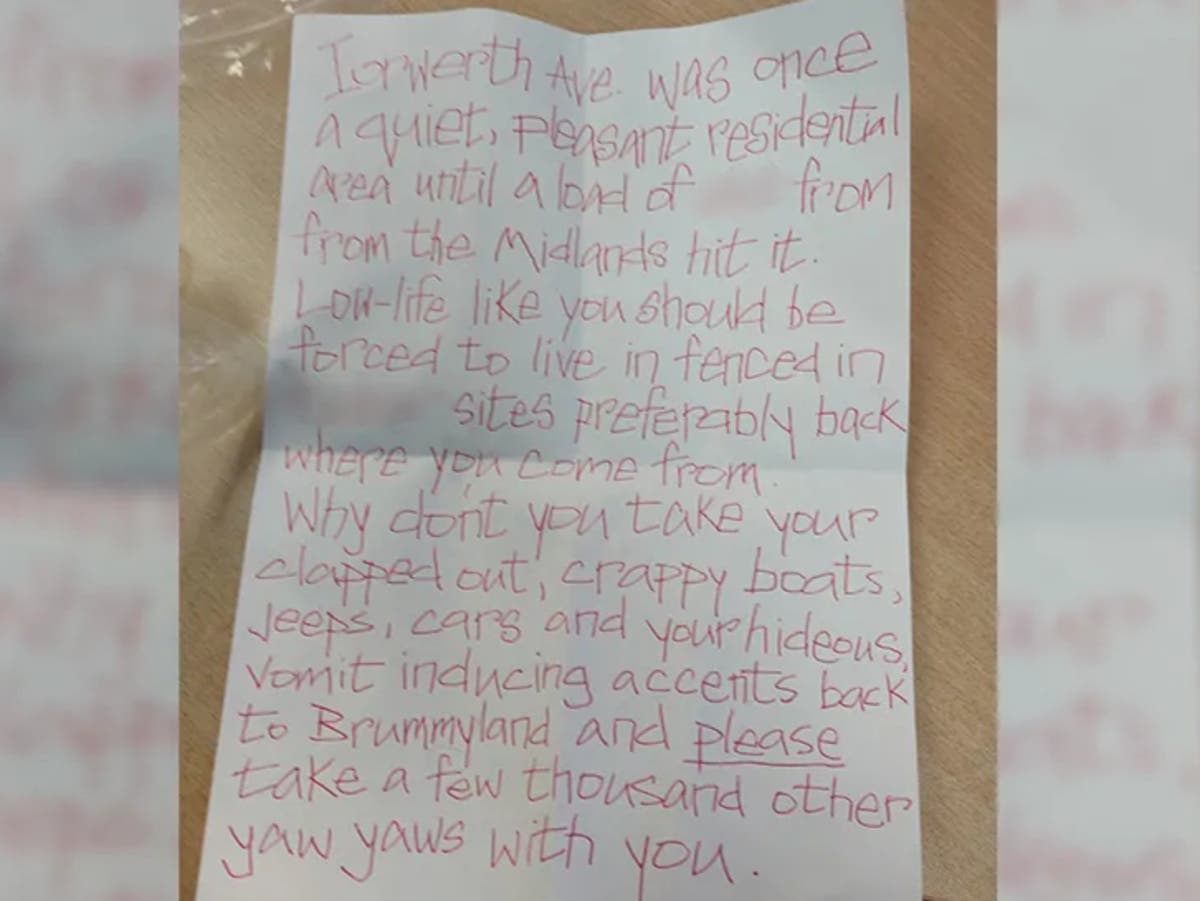 Iorwerth Ave. was once
a quiet, pleasant residential
area until a load of from
from the Midlands hit it.
Low-life like you should be
forced to live in fenced in
sites preferably back
where you come from.
Why don't you take your
clapped out, crappy boats,
Jeeps, cars and your hideous,
vomit inducing accents back
to Brummyland and please
take a few thousand other
yaw yaws with you.